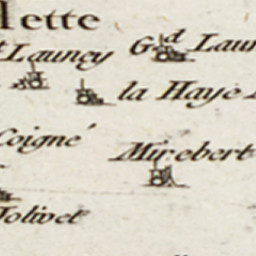 lette
t Launey
Gd Laun
la Haye
Coigné
Mirebert
Jolivet